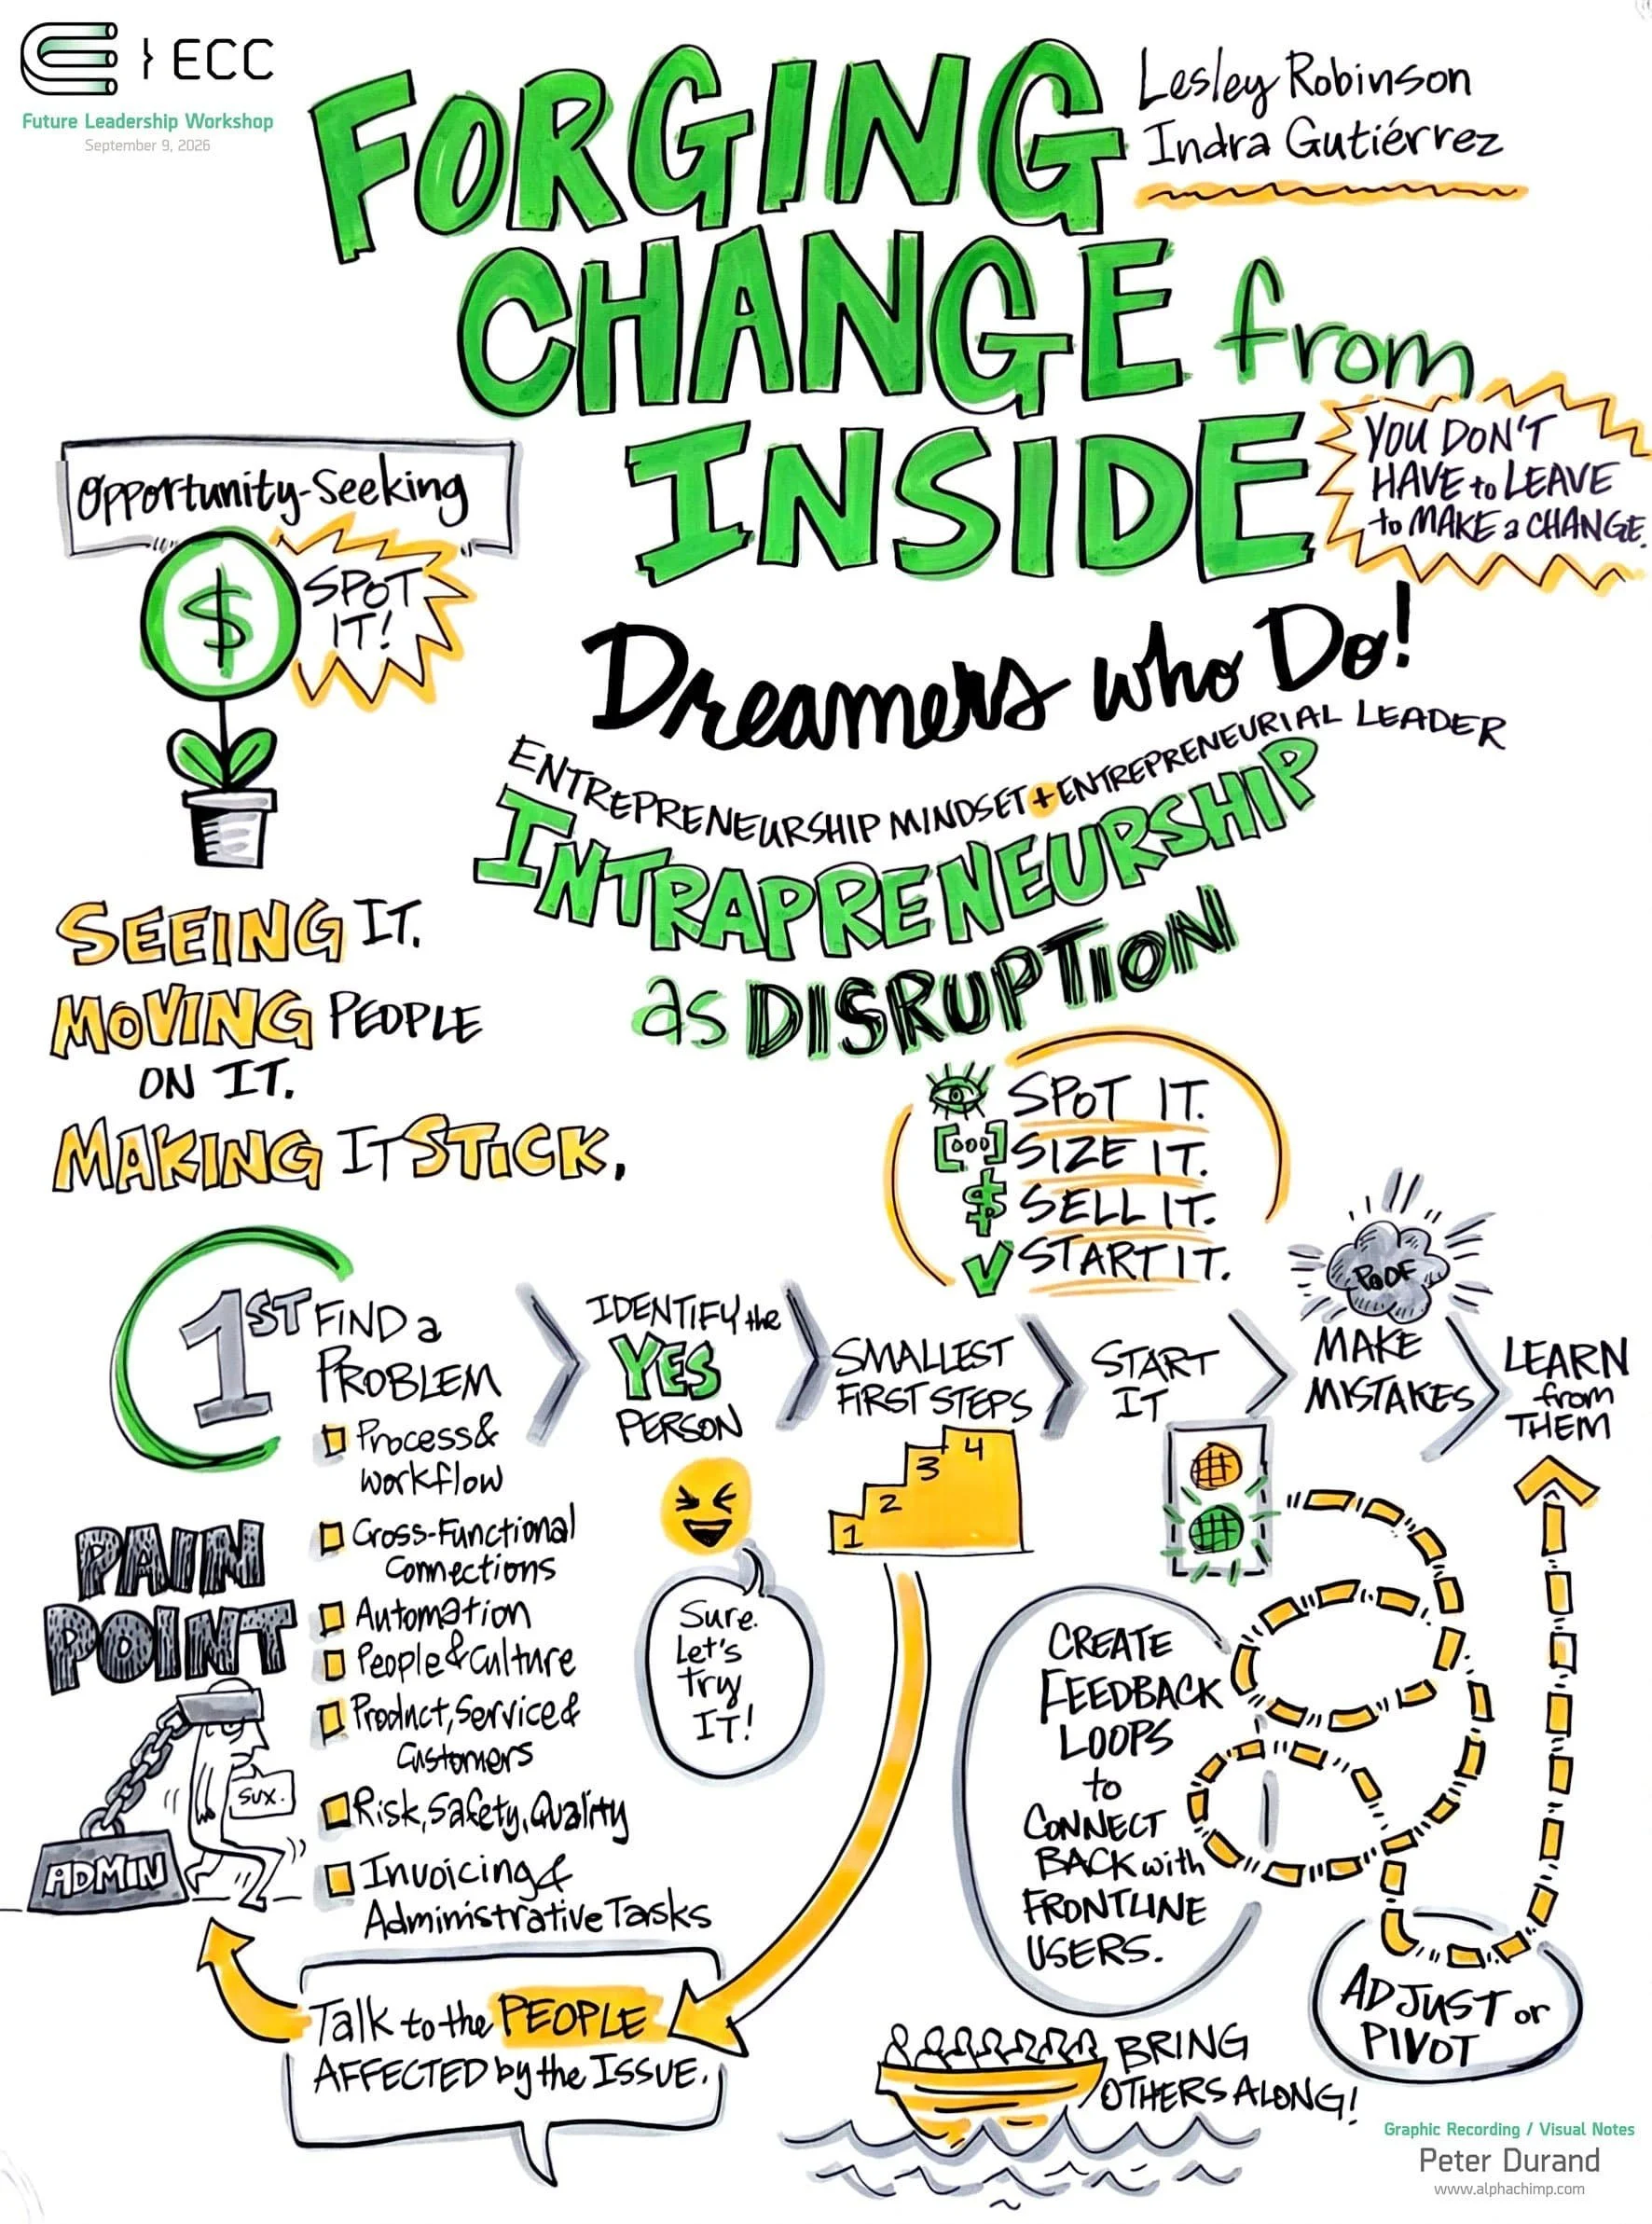 } ECC
Future Leadership Workshop
September 9, 2026
FORGING
CHANGE from
INSIDE
Lesley Robinson
Indra Gutiérrez
YOU DON'T
HAVE to LEAVE
to MAKE a CHANGE.
Opportunity-Seeking
$
SPOT
IT!
Dreamers who Do!
ENTREPRENEURSHIP MINDSET + ENTREPRENEURIAL LEADER
INTRAPRENEURSHIP
as DISRUPTION
SEEING IT.
MOVING PEOPLE
ON IT.
MAKING IT STICK.
SPOT IT.
[ooo] SIZE IT.
$ SELL IT.
START IT.
1ST FIND a
PROBLEM
Process &
workflow
Cross-Functional
Connections
Automation
People & Culture
Product, Service &
Customers
Risk, Safety, Quality
Invoicing &
Administrative Tasks
PAIN
POINT
SUX.
ADMIN
IDENTIFY the
YES
PERSON
Sure.
Let's
Try
IT!
SMALLEST
FIRST STEPS
1
2
3
4
START
IT
POOF
MAKE
MISTAKES
LEARN
from
THEM
CREATE
FEEDBACK
LOOPS
to
CONNECT
BACK with
FRONTLINE
USERS.
ADJUST or
PIVOT
Talk to the PEOPLE
AFFECTED by the ISSUE.
BRING
OTHERS ALONG!
Graphic Recording / Visual Notes
Peter Durand
www.alphachimp.com